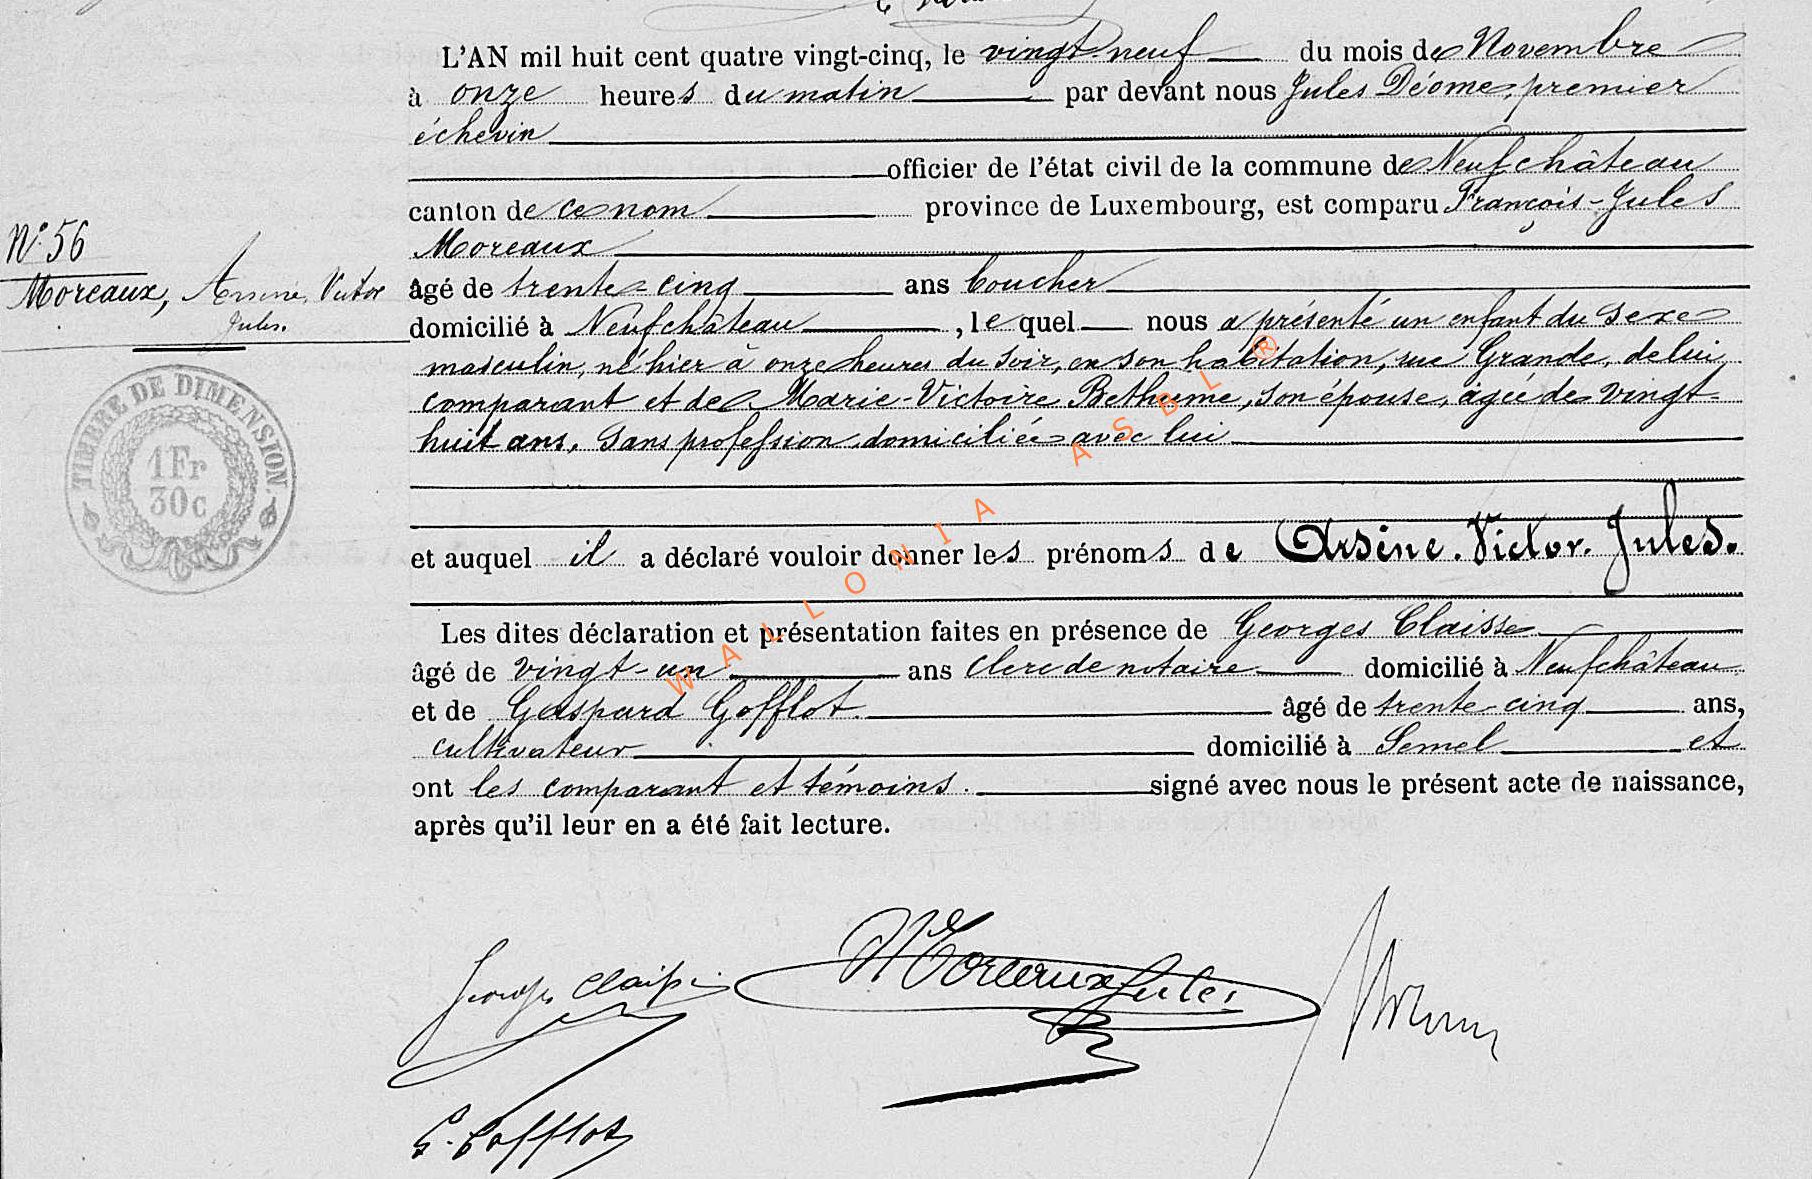 L'AN mil huit cent quatre vingt-cinq, le vingt-neuf du mois de Novembre
à onze heures du matin par devant nous Jules Déome, premier
échevin
officier de l'état civil de la commune de Neufchâteau
canton de ce nom province de Luxembourg, est comparu François-Jules
Moreaux
N° 56
Moreaux, Arsène, Victor
Jules.
âgé de trente-cinq ans boucher
domicilié à Neufchâteau, le quel nous a présenté un enfant du sexe
masculin, né hier à onze heures du soir, en son habitation, rue Grande, de lui
comparant et de Marie-Victoire Bethume, son épouse, âgée de vingt-
huit ans, sans profession domiciliée avec lui
TIMBRE DE DIMENSION
1 Fr
30c
et auquel il a déclaré vouloir donner les prénoms de Arsène. Victor. Jules.
Les dites déclaration et présentation faites en présence de Georges Claisse
âgé de vingt-un ans clerc de notaire domicilié à Neufchâteau
et de Gaspard Gofflot. âgé de trente-cinq ans,
cultivateur domicilié à Semel et
ont les comparant et témoins. signé avec nous le présent acte de naissance,
après qu'il leur en a été fait lecture.
Georges Claisse
Moreaux Jules
G. Gofflot
WALLONIA ASBL ®